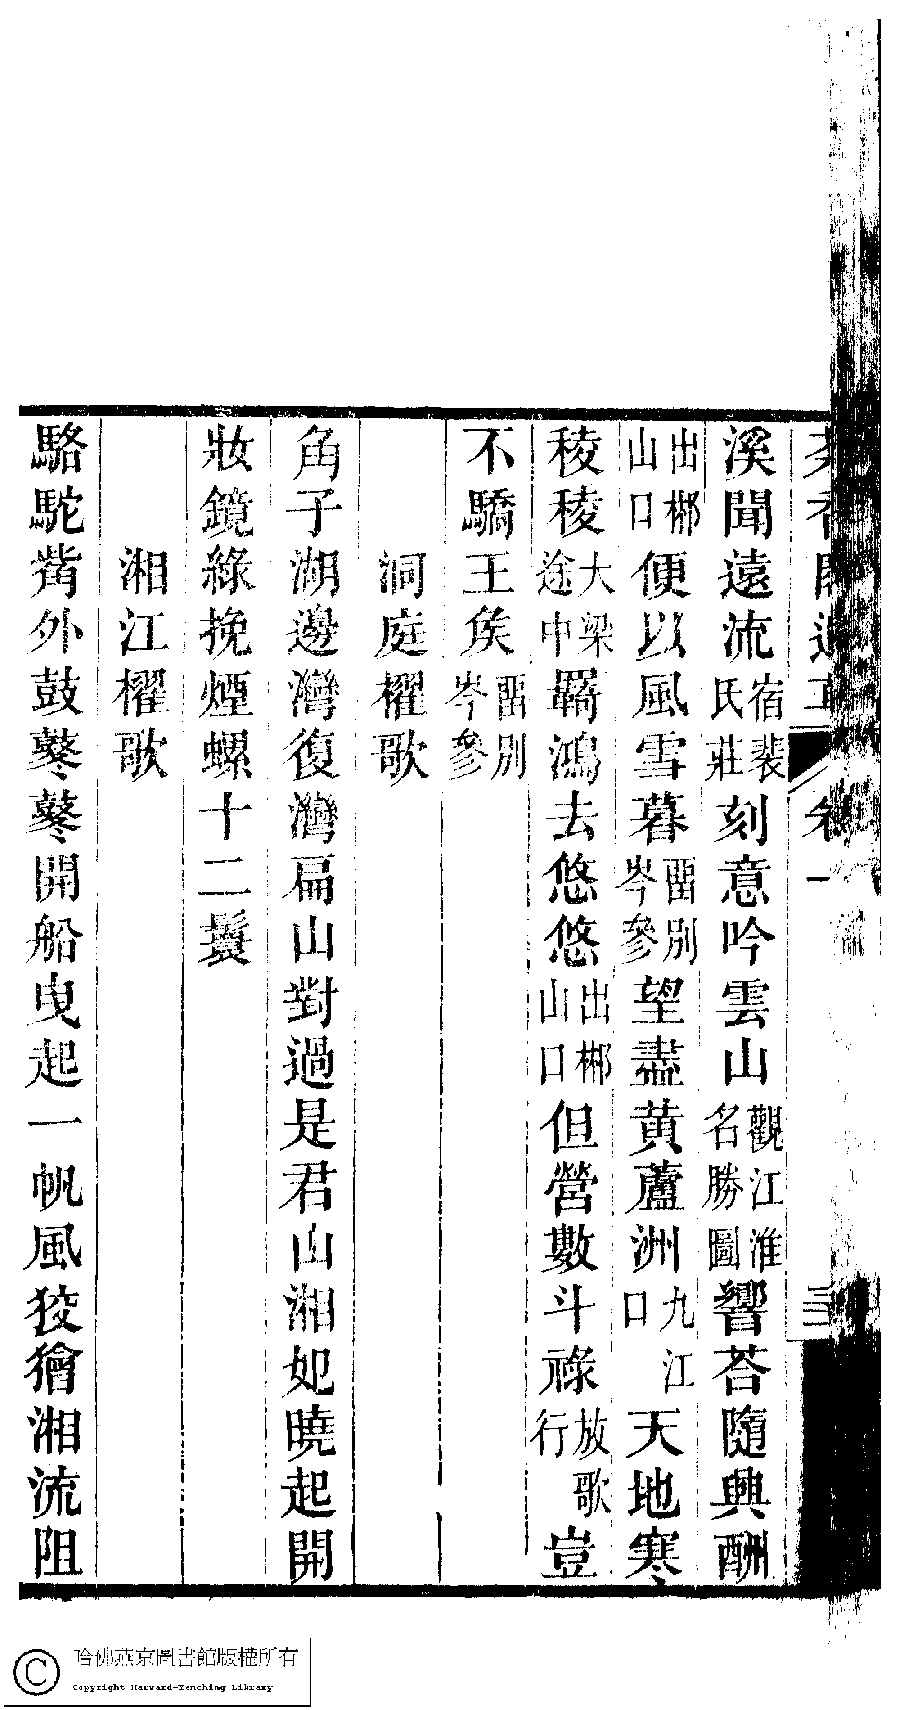 卷一
三
溪聞遠流宿裴氏莊刻意吟雲山觀江淮名勝圖響荅隨興酬
出郴山口便以風雪暮畱別岑參望盡黃蘆洲九江口天地寒
稜稜大梁途中羇鴻去悠悠出郴山口但營數斗祿放歌行豈
不驕王矦畱別岑參
洞庭櫂歌
角子湖邊灣復灣扁山對過是君山湘妃曉起開
妝鏡綠挽煙螺十二鬟
湘江櫂歌
駱駝觜外鼓鼕鼕開船曳起一帆風狡獪湘流阻
哈佛燕京圖書館版權所有
Copyright Harvard-Yenching Library